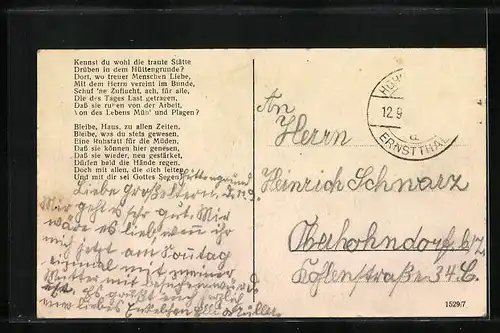 Kennst du wohl die traute Stätte
Drüben in dem Hüttengrunde?
Dort, wo treuer Menschen Liebe,
Mit dem Herrn vereint im Bunde,
Schuf 'ne Zuflucht, ach, für alle,
Die des Tages Last getragen,
Daß sie ruhen von der Arbeit,
Von des Lebens Müh' und Plagen?
Bleibe, Haus, zu allen Zeiten,
Bleibe, was du stets gewesen,
Eine Ruhstatt für die Müden,
Daß sie können hier genesen,
Daß sie wieder, neu gestärket,
Dürfen bald die Hände regen.
Doch mit allen, die dich leiten,
Und mit dir sei Gottes Segen!
Hüttengrund
Liebe Großeltern.
Mir geht es sehr gut. Mir
wäre es lieb, wenn ihr
mich jetzt am Sonntag
einmal mit meiner
Mutter mit besuchen
Es grüßt euch
euer liebes Enkelchen Müller
HOH
12.9
ERNSTTHAL
An
Herrn
Heinrich Schwarz
Oberhohndorf b/Z.
Kohlenstraße 34 C.
1529/7